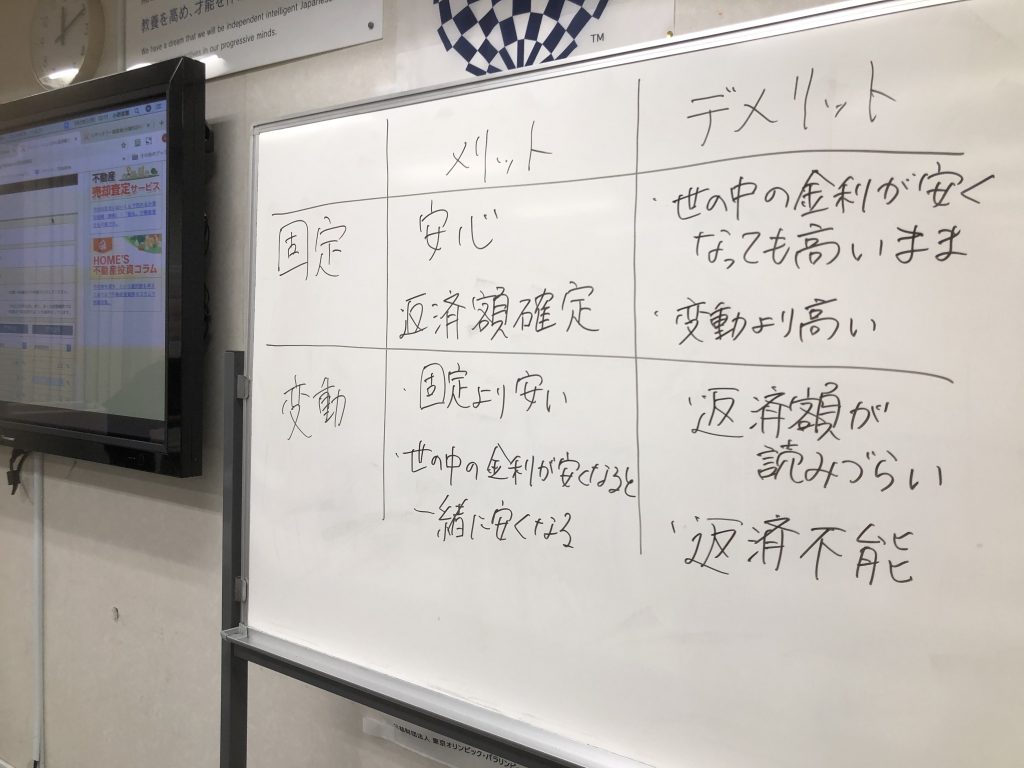 教養を高め、才能を
We have a dream that we will be independent intelligent Japanese
in our progressive minds.
TM
不動産
売却査定サービス
HOME'S
不動産投資コラム
メリット
デメリット
固定
安心
返済額確定
・世の中の金利が安く
なっても高いまま
・変動より高い
変動
・固定より安い
・世の中の金利が安くなると
一緒に安くなる
・返済額が
読みづらい
・返済不能
財団法人 東京オリンピック・パラリンピ